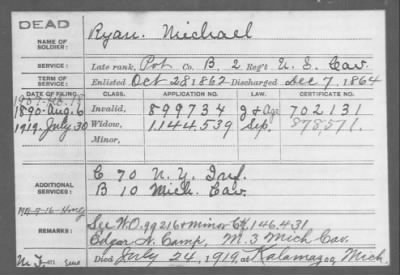 DEAD
NAME OF SOLDIER: Ryan. Michael
SERVICE: Late rank, Pvt Co. B, 2 Reg't U. S. Cav.
TERM OF SERVICE: Enlisted Oct 28 1862 Discharged Dec 7, 1864
DATE OF FILING. CLASS. APPLICATION NO. LAW. CERTIFICATE NO.
1890-Aug. 6 Invalid, 899734 g & Age 702131
1919-July 30 Widow, 1,144,539 Sep. 878,571.
Minor,
ADDITIONAL SERVICES: C 70 N. Y. Inf.
B 10 Mich. Cav.
REMARKS: See W.O. 99216 & Minor Ctf. 146.431
Edgar N. Camp, M. 3 Mich Cav.
Died July 24, 1919, at Kalamazoo, Mich.